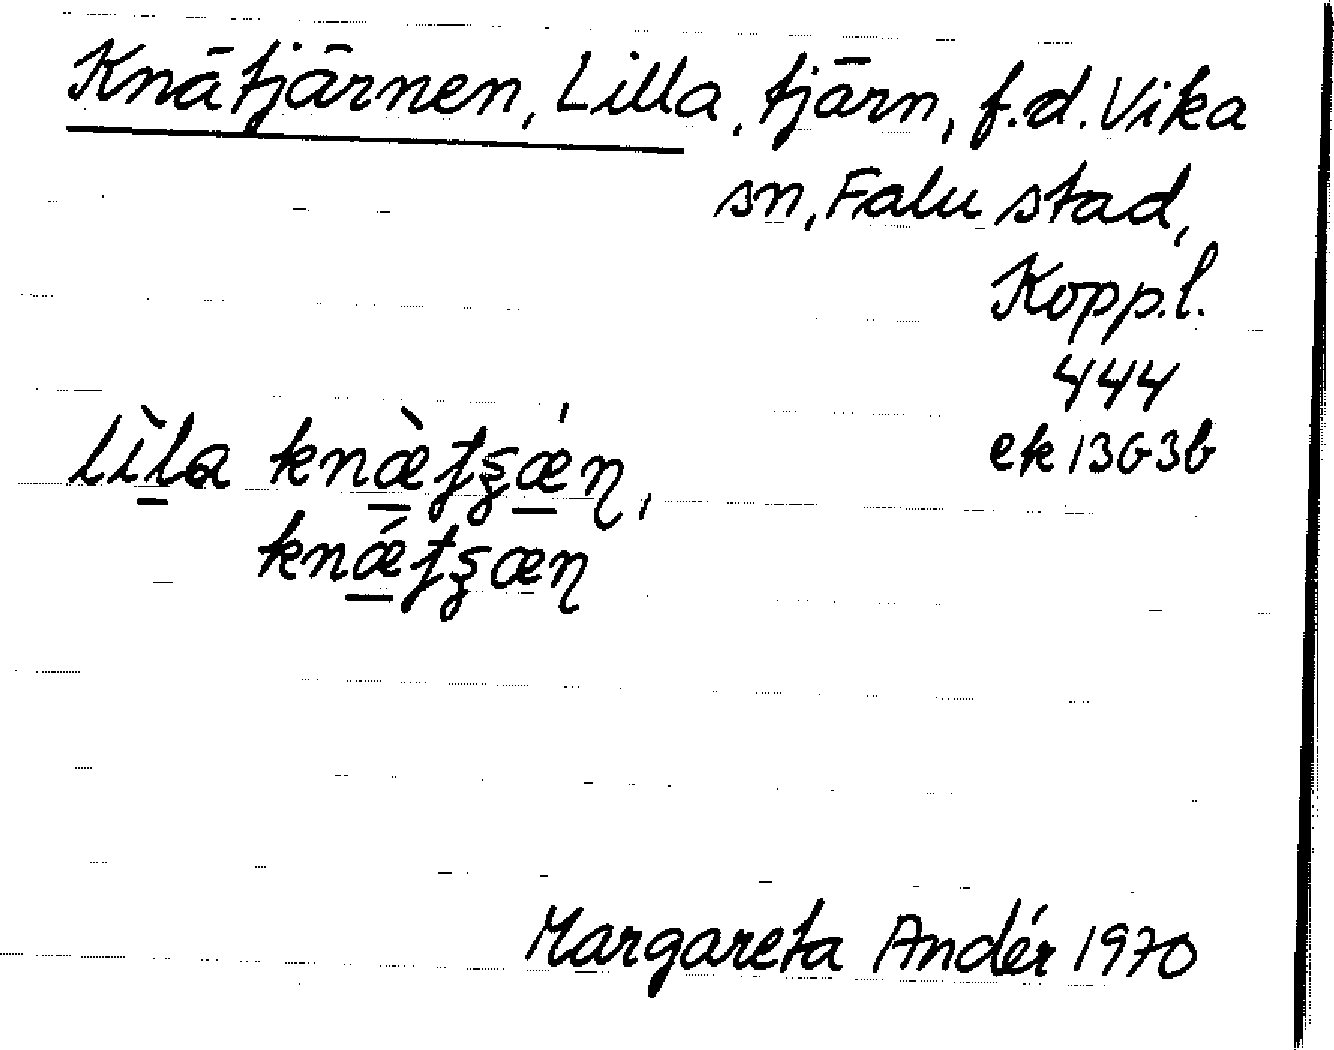 Knätjärnen, Lilla, tjärn, f.d. Vika
sn, Falu stad,
Kopp.l.
444
ek 13G3b
Lìla
Margareta Andér 1970